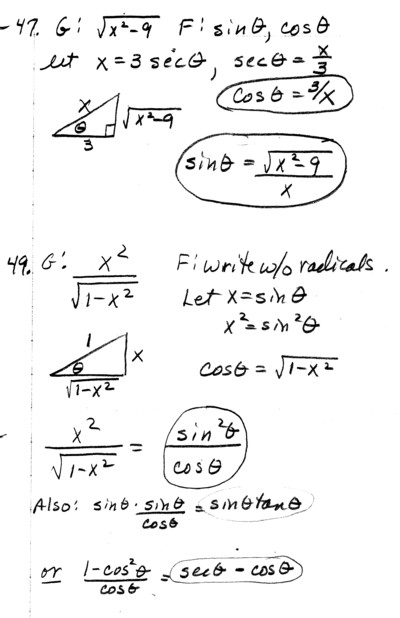 47. G: √x²-9 F: sinθ, cosθ
let x = 3 secθ, secθ = x/3
cosθ = 3/x
x
θ
√x²-9
3
sinθ = √x²-9/x
49. G: x²/√1-x² F: write w/o radicals.
Let x = sinθ
x² = sin²θ
1
θ
x
√1-x²
cosθ = √1-x²
x²/√1-x² = sin²θ/cosθ
Also: sinθ · sinθ/cosθ = sinθ tanθ
or 1-cos²θ/cosθ = secθ - cosθ